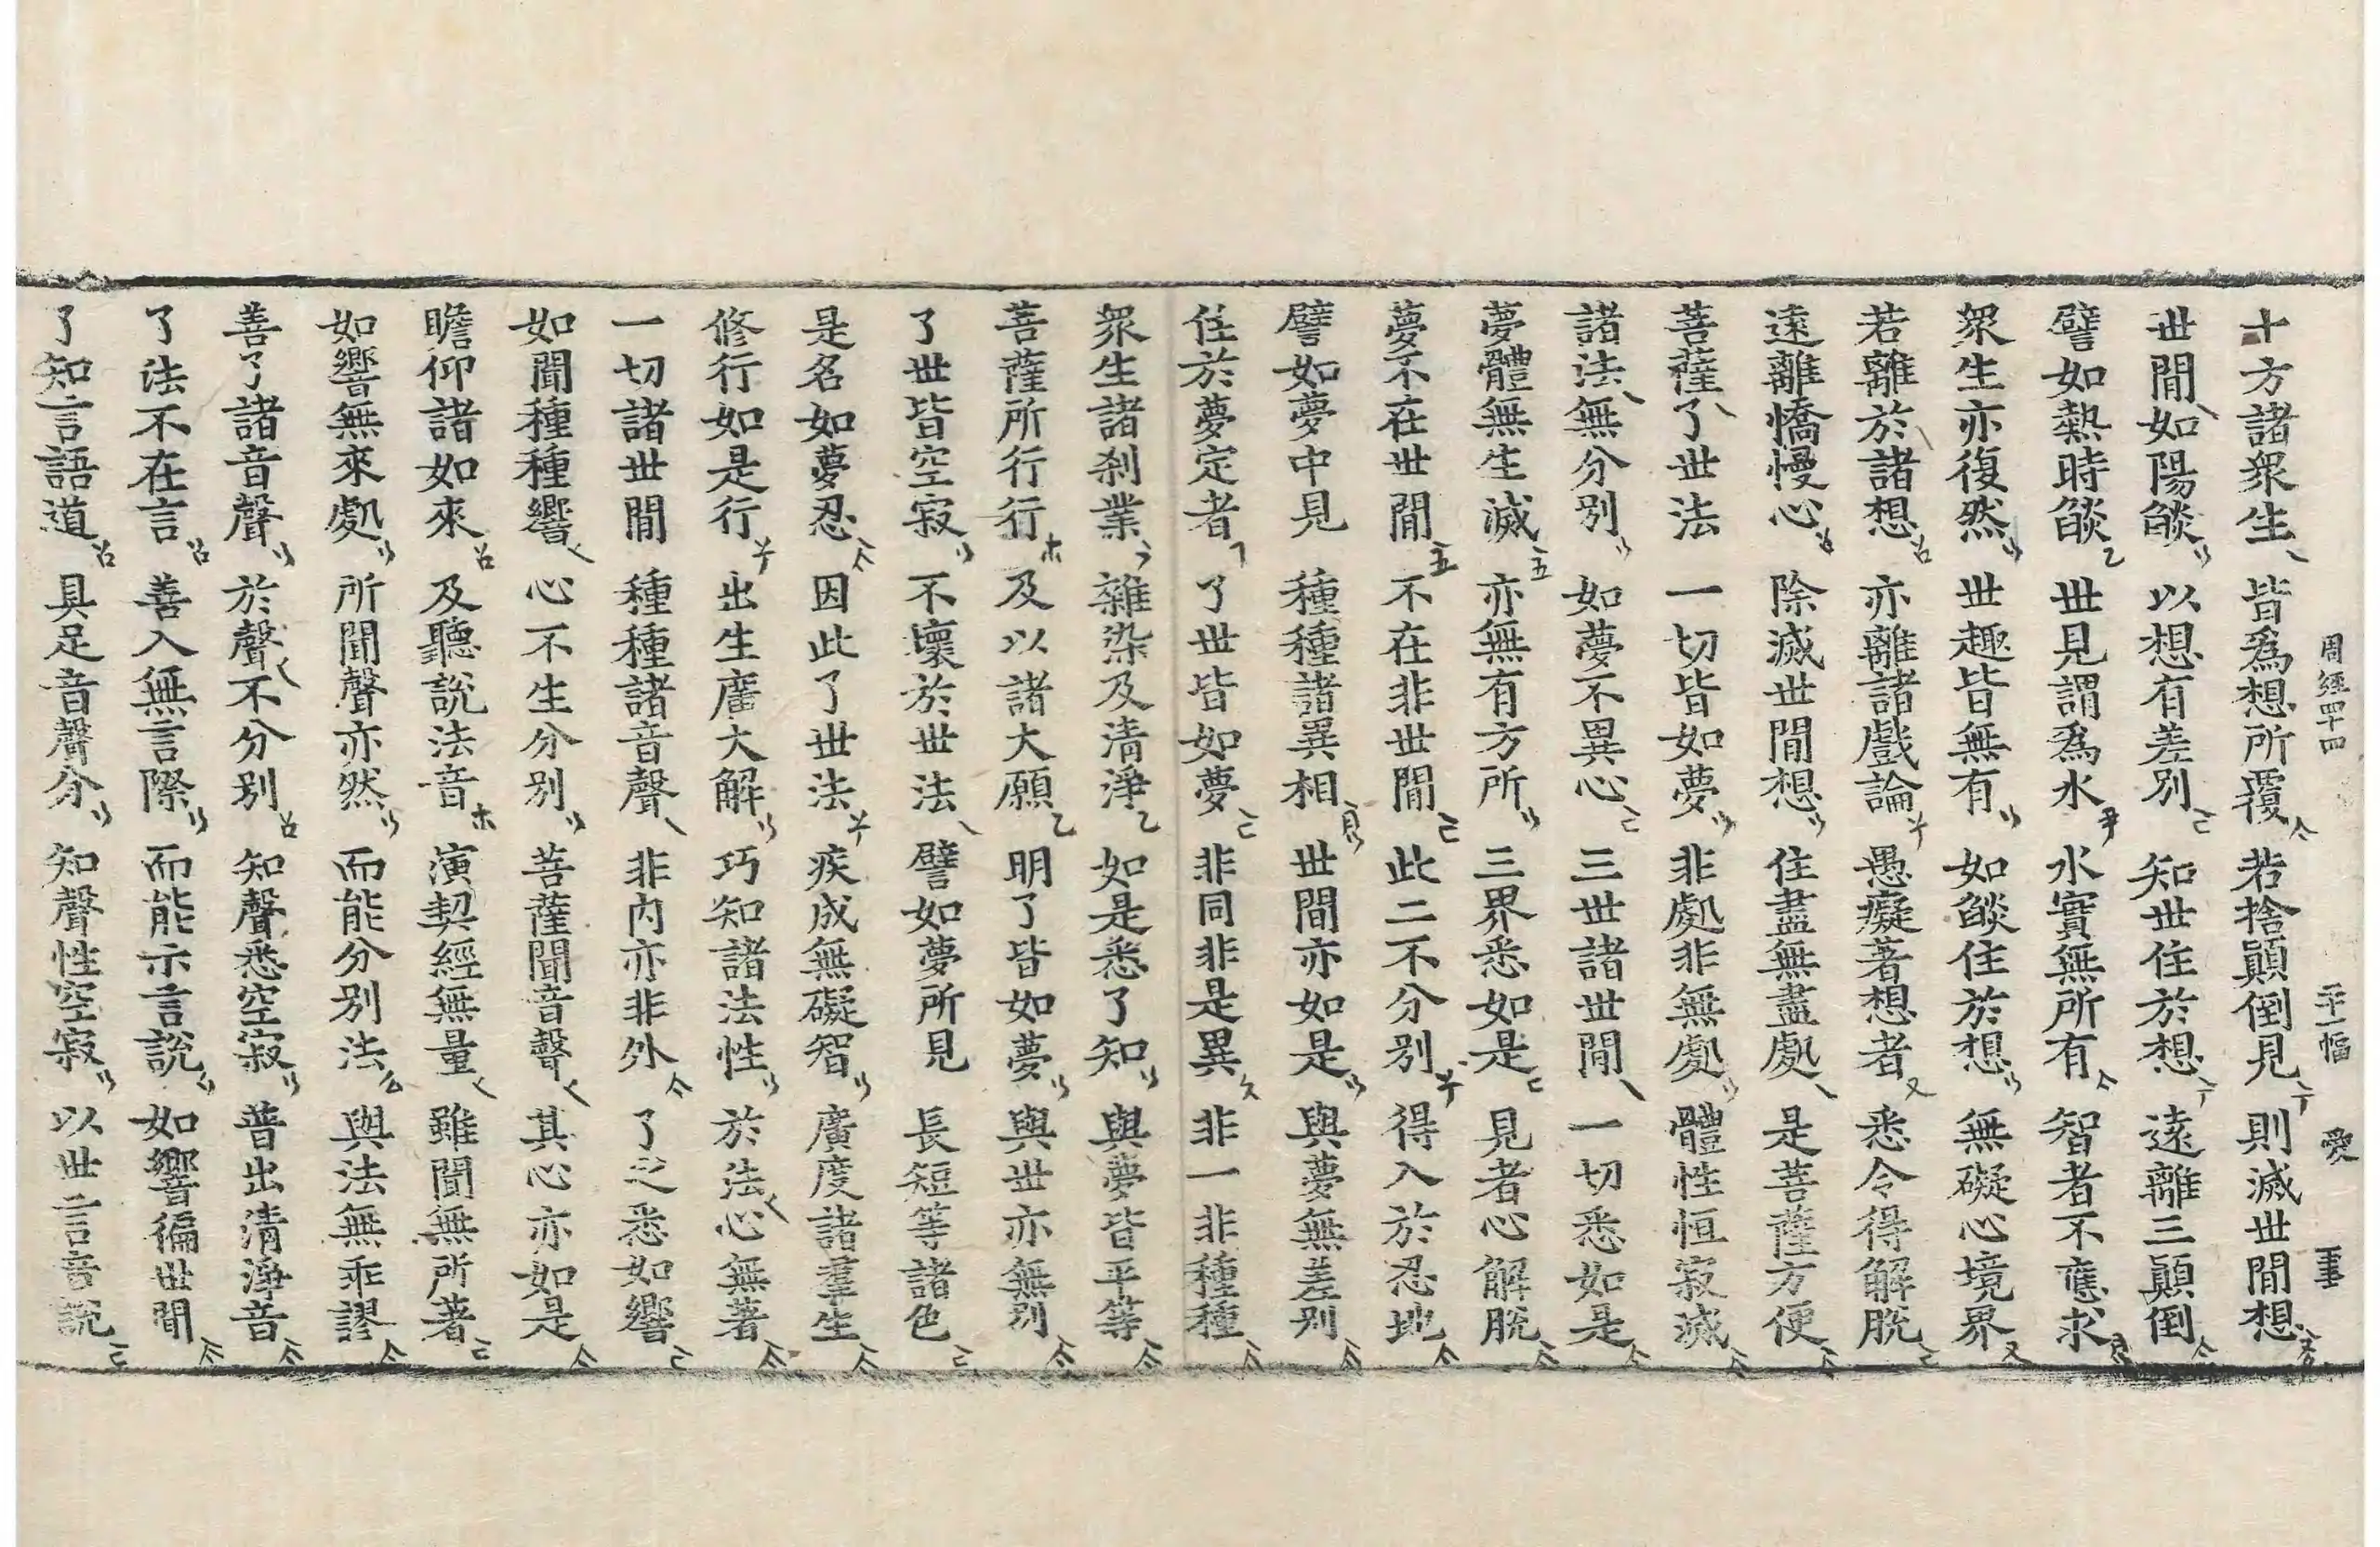 周經四十四 二十一幅 愛 事
十方諸衆生 皆爲想所覆 若捨顚倒見 則滅世閒想
世閒如陽燄 以想有差別 知世住於想 遠離三顚倒
譬如熱時燄 世見謂爲水 水實無所有 智者不應求
衆生亦復然 世趣皆無有 如燄住於想 無礙心境界
若離於諸想 亦離諸戲論 愚癡著想者 悉令得解脫
遠離憍慢心 除滅世閒想 住盡無盡處 是菩薩方便
菩薩了世法 一切皆如夢 非處非無處 體性恒寂滅
諸法無分別 如夢不異心 三世諸世閒 一切悉如是
夢體無生滅 亦無有方所 三界悉如是 見者心解脫
夢不在世閒 不在非世閒 此二不分別 得入於忍地
譬如夢中見 種種諸異相 世間亦如是 與夢無差別
住於夢定者 了世皆如夢 非同非是異 非一非種種
衆生諸刹業 雜染及清淨 如是悉了知 與夢皆平等
菩薩所行行 及以諸大願 明了皆如夢 與世亦無別
了世皆空寂 不壞於世法 譬如夢所見 長短等諸色
是名如夢忍 因此了世法 疾成無礙智 廣度諸羣生
修行如是行 出生廣大解 巧知諸法性 於法心無著
一切諸世閒 種種諸音聲 非內亦非外 了之悉如響
如聞種種響 心不生分別 菩薩聞音聲 其心亦如是
瞻仰諸如來 及聽說法音 演契經無量 雖聞無所著
如響無來處 所聞聲亦然 而能分別法 與法無乖謬
善了諸音聲 於聲不分別 知聲悉空寂 普出清淨音
了法不在言 善入無言際 而能示言說 如響徧世閒
了知言語道 具足音聲分 知聲性空寂 以世言音說